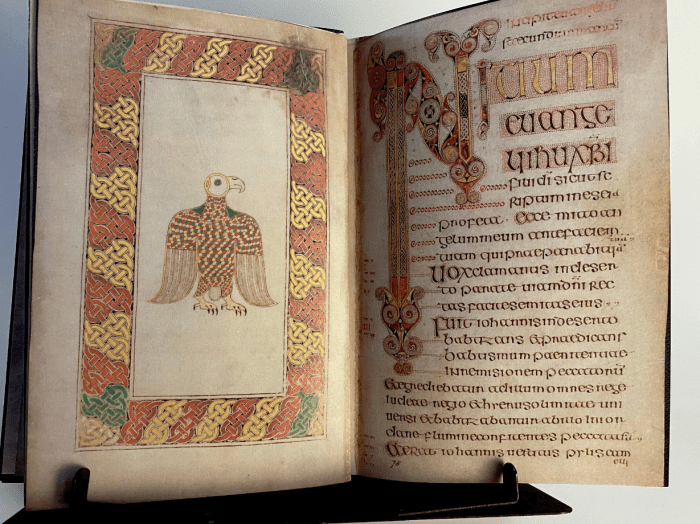 secundum
INItium
euange
lii ihu xpi
fili di sicut sc
riptum in esei
profeta · Ecce mitto an
gelum meum ante faciem
tuam qui praeparabit uia
Uox clamantis in deser
to parate uiam dni rec
tas facite semitas eius
Fuit iohannis in deserto
babtizans et praedicans
babtismum paenitentiae
in remisionem peccatorum
ad illum omnes
iudeae regio et hierusolimitae uni
uersi et
dane flumine confitentes peccata sua
Et erat iohannis uestitus pilis cam